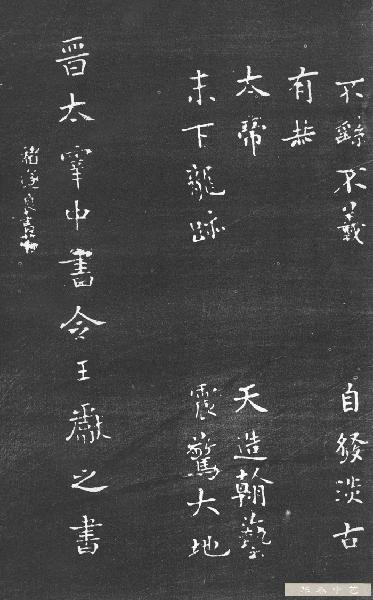 不繇不羲 自發淡古
有恭
太帝 天造翰藝
未下龍跡 震驚大地
晉太宰中書令王獻之書
褚遂良